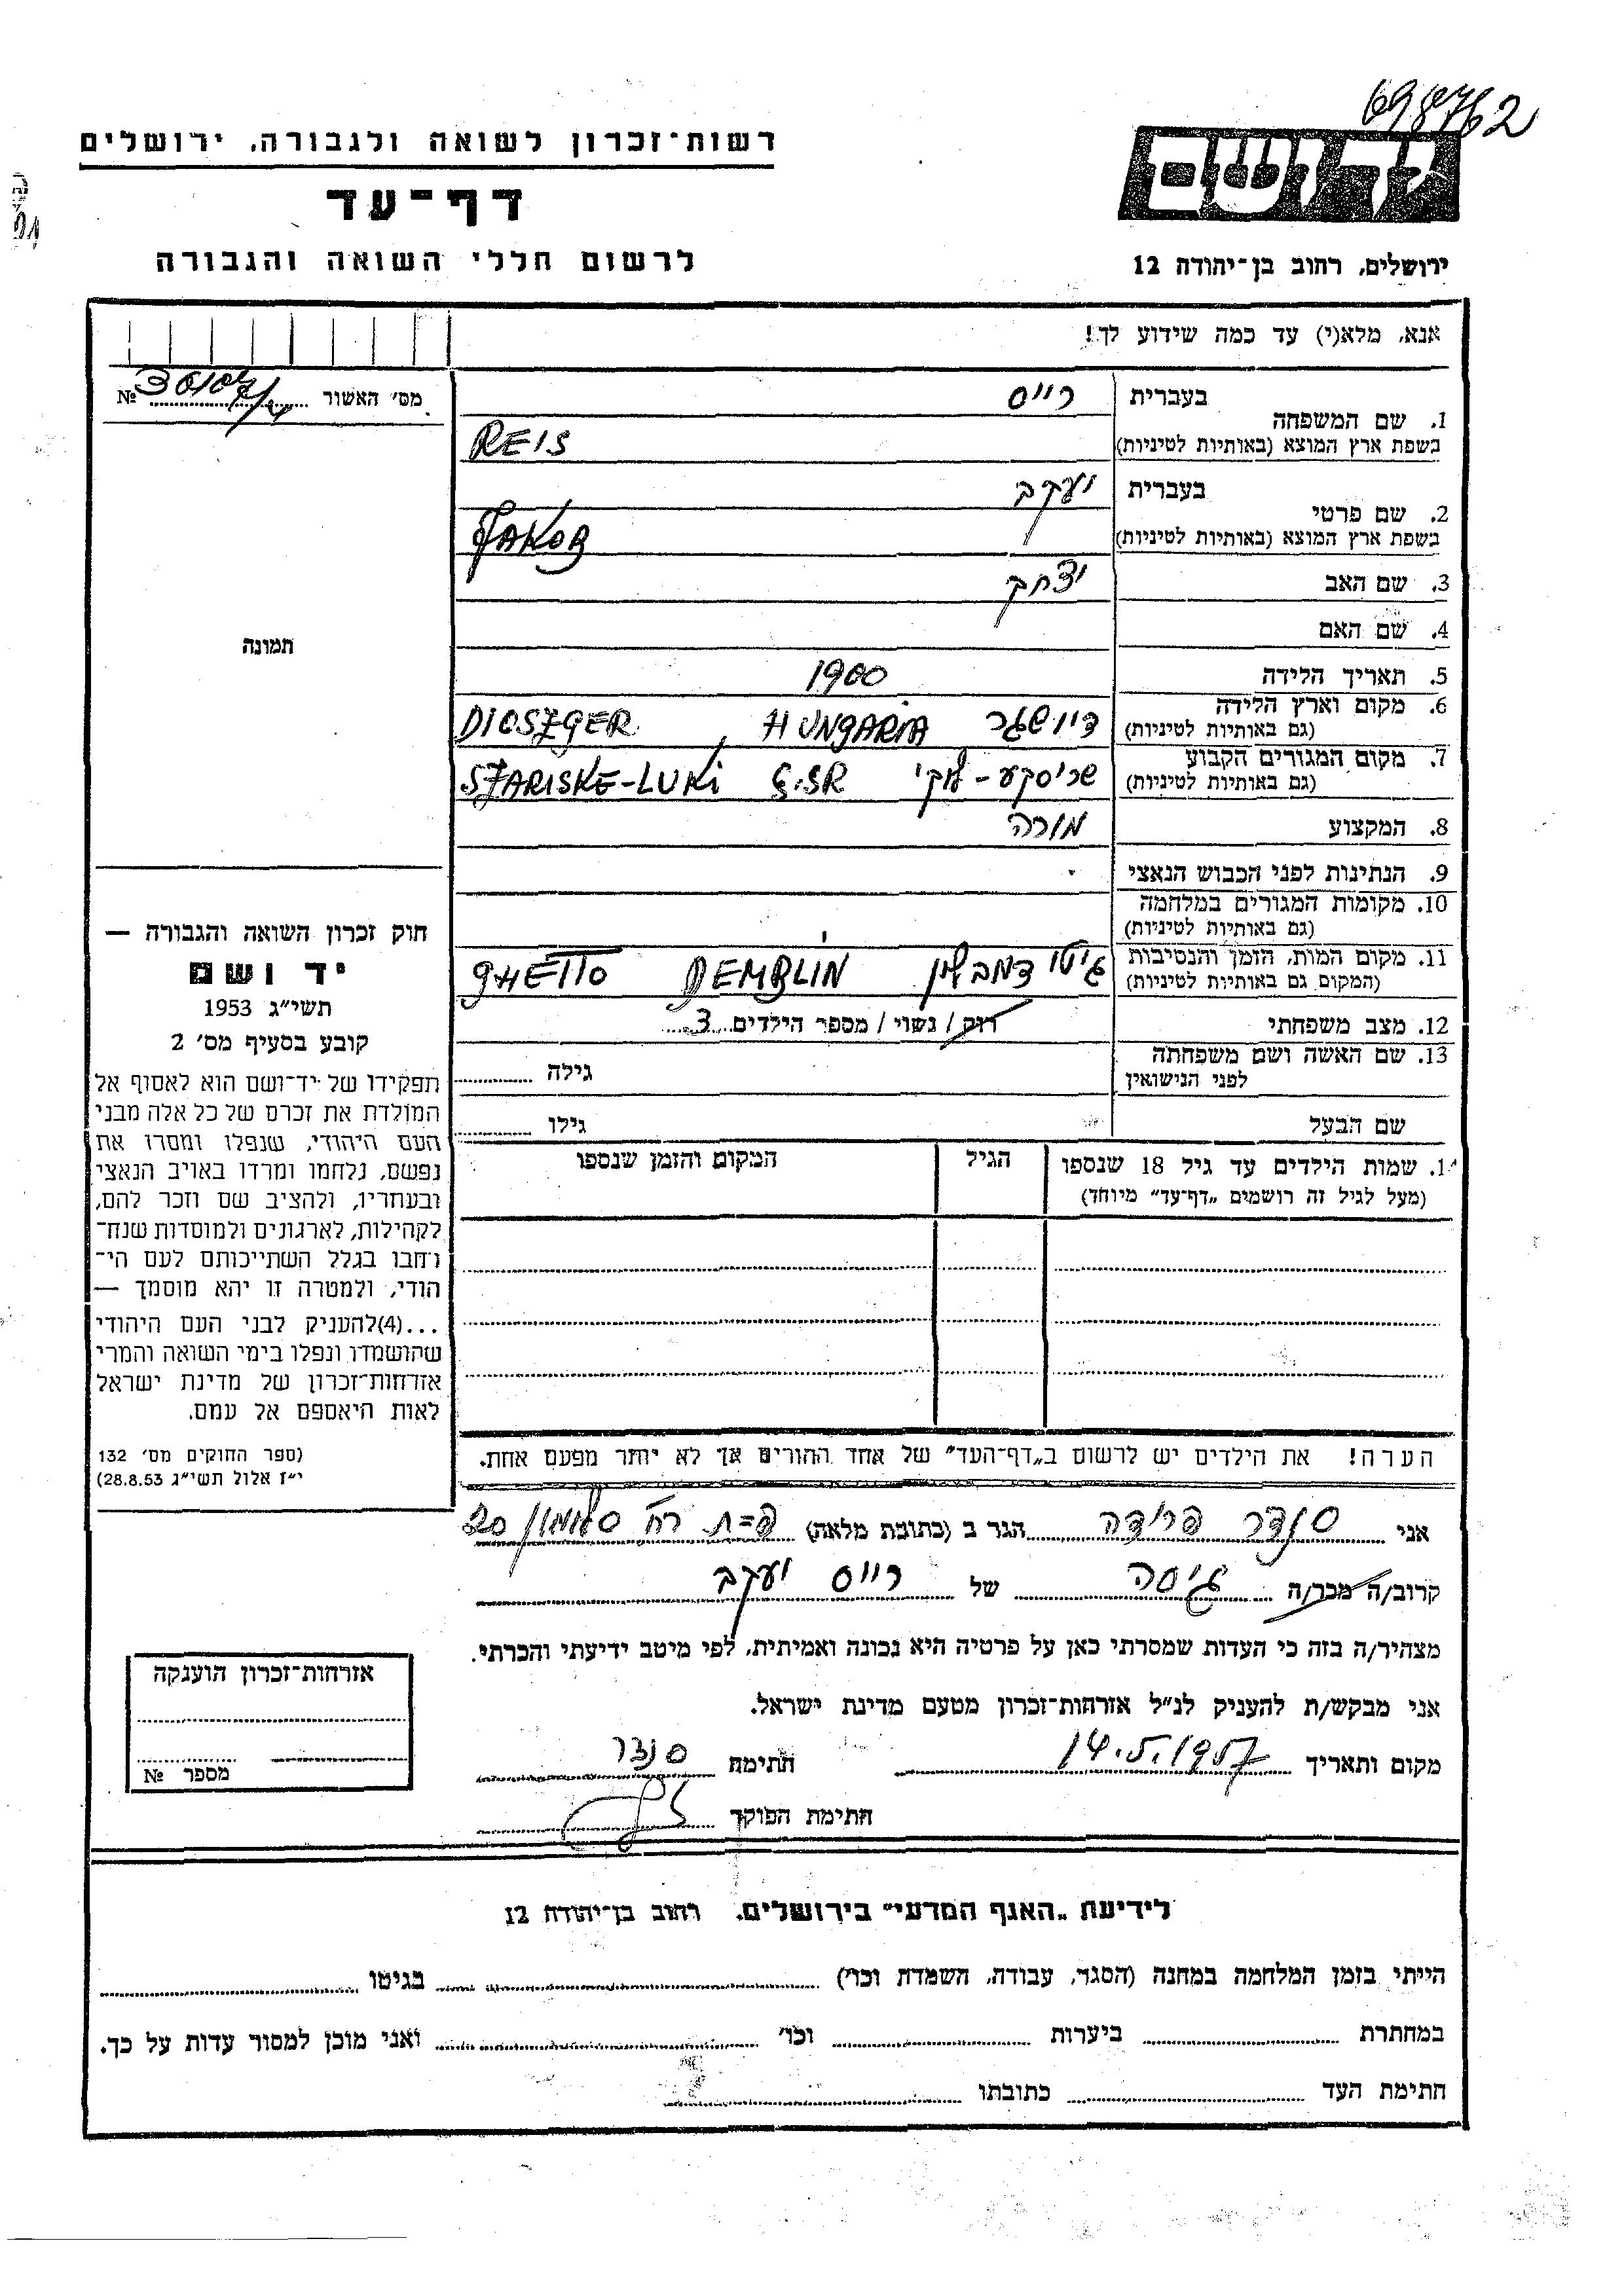 698762
רשות־זכרון לשואה ולגבורה, ירושלים
דף־עד
לרשום חללי השואה והגבורה
יד ושם
ירושלים, רחוב בן־יהודה 12
אנא, מלא(י) עד כמה שידוע לך!
מס׳ האשור №
1. שם המשפחה
בעברית רייס
בשפת ארץ המוצא (באותיות לטיניות) REIS
2. שם פרטי
בעברית יעקב
בשפת ארץ המוצא (באותיות לטיניות) JAKOB
3. שם האב יצחק
4. שם האם
5. תאריך הלידה 1900
6. מקום וארץ הלידה
(גם באותיות לטיניות) דיושגר HUNGARIA DIOSZGER
7. מקום המגורים הקבוע
(גם באותיות לטיניות) שריסקע-לוקי Č.SR SZARISKE-LUKI
8. המקצוע מורה
9. הנתינות לפני הכבוש הנאצי
10. מקומות המגורים במלחמה
(גם באותיות לטיניות)
11. מקום המות, הזמן והנסיבות
(המקום גם באותיות לטיניות) גיטו דמבלין DEMBLIN GHETTO
12. מצב משפחתי רוק / נשוי / מספר הילדים 3
13. שם האשה ושם משפחתה
לפני הנישואין גילה
שם הבעל גילו
1. שמות הילדים עד גיל 18 שנספו
(מעל לגיל זה רושמים „דף־עד” מיוחד)
הגיל
המקום והזמן שנספו
תמונה
חוק זכרון השואה והגבורה —
יד ושם
תשי״ג 1953
קובע בסעיף מס׳ 2
תפקידו של יד־ושם הוא לאסוף אל
המולדת את זכרם של כל אלה מבני
העם היהודי, שנפלו ומסרו את
נפשם, נלחמו ומרדו באויב הנאצי
ובעוזריו, ולהציב שם וזכר להם,
לקהילות, לארגונים ולמוסדות שנח־
רחבו בגלל השתייכותם לעם הי־
הודי, ולמטרה זו יהא מוסמך —
...(4)להעניק לבני העם היהודי
שהושמדו ונפלו בימי השואה והמרי
אזרחות־זכרון של מדינת ישראל
לאות היאספם אל עמם.
(ספר החוקים מס׳ 132
י״ז אלול תשי״ג 28.8.53)
הערה! את הילדים יש לרשום ב„דף־העד” של אחד ההורים אך לא יותר מפעם אחת.
אני סנדר פרידה הגר ב (כתובת מלאה) פ=ת רח סלומון 20
קרוב/ה מכר/ה גיסה של רייס יעקב
מצהיר/ה בזה כי העדות שמסרתי כאן על פרטיה היא נכונה ואמיתית, לפי מיטב ידיעתי והכרתי.
אני מבקש/ת להעניק לנ״ל אזרחות־זכרון מטעם מדינת ישראל.
מקום ותאריך 14.5.1957 חתימה סנדר
חתימת הפוקד
אזרחות־זכרון הוענקה
מספר №
לידיעת „האגף המדעי” בירושלים, רחוב בן־יהודה 12
הייתי בזמן המלחמה במחנה (הסגר, עבודה, השמדת וכו׳) בגיטו
במחתרת ביערות וכו׳ ואני מוכן למסור עדות על כך.
חתימת העד כתובתו